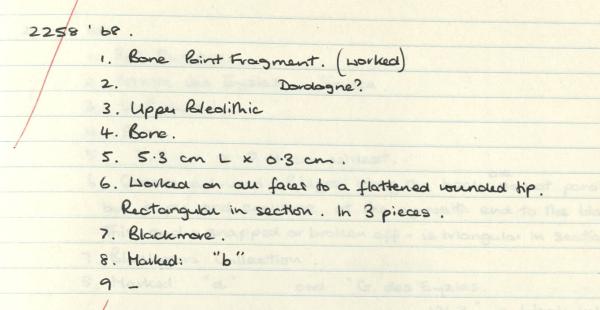 2258 ' b8.
1. Bone Point Fragment. (worked)
2. Dordogne?
3. Upper Paleolithic
4. Bone.
5. 5.3 cm L x 0.3 cm.
6. Worked on all faces to a flattened rounded tip.
Rectangular in section. In 3 pieces.
7. Blackmore.
8. Marked: "b"
9 –